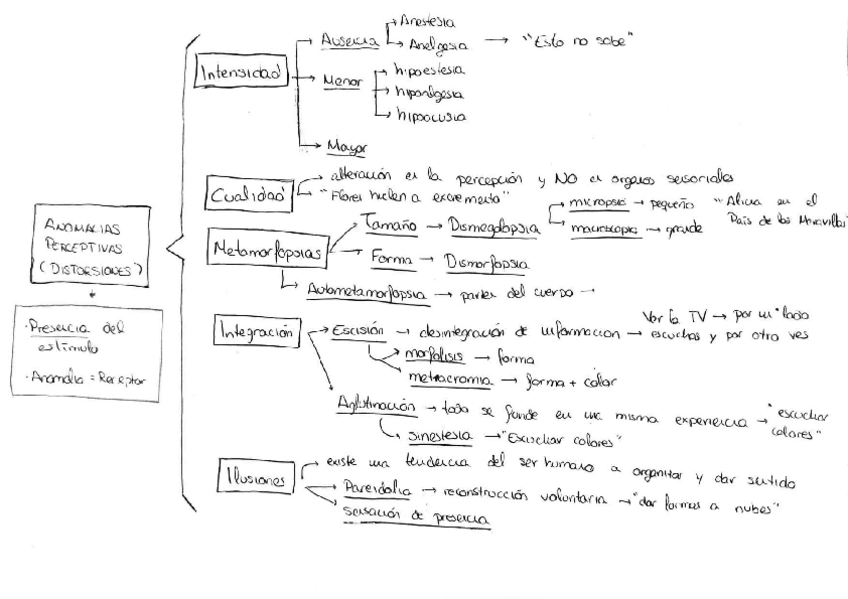 Intensidad
→ Ausencia
→ Anestesia
→ Analgesia → "Esto no sabe"
→ Menor
→ hipoestesia
→ hipoalgesia
→ hipoacusia
→ Mayor
Cualidad
→ alteración en la percepción y NO en organos sensoriales
→ "Flores huelen a excremento"
ANOMALIAS
PERCEPTIVAS
(DISTORSIONES)
·Presencia del
estímulo
·Anomalia = Receptor
Metamorfopsias
Tamaño → Dismegalopsia
→ micropsia → pequeño
→ macropsia → grande
"Alicia en el
País de las Maravillas"
→ Forma → Dismorfopsia
→ Autometamorfopsia → partes del cuerpo →
Integración
→ Escisión → desintegración de informacion →
Ver la TV → por un lado
escuchas y por otro ves
→ morfolisis → forma
→ metacromia → forma + color
Aglutinación → todo se funde en una misma experiencia → "escuchar
colores"
→ sinestesia → "Escuchar colores"
Ilusiones
→ existe una tendencia del ser humano a organizar y dar sentido
→ Pareidolia → reconstrucción voluntaria → "dar formas a nubes"
→ sensación de presencia